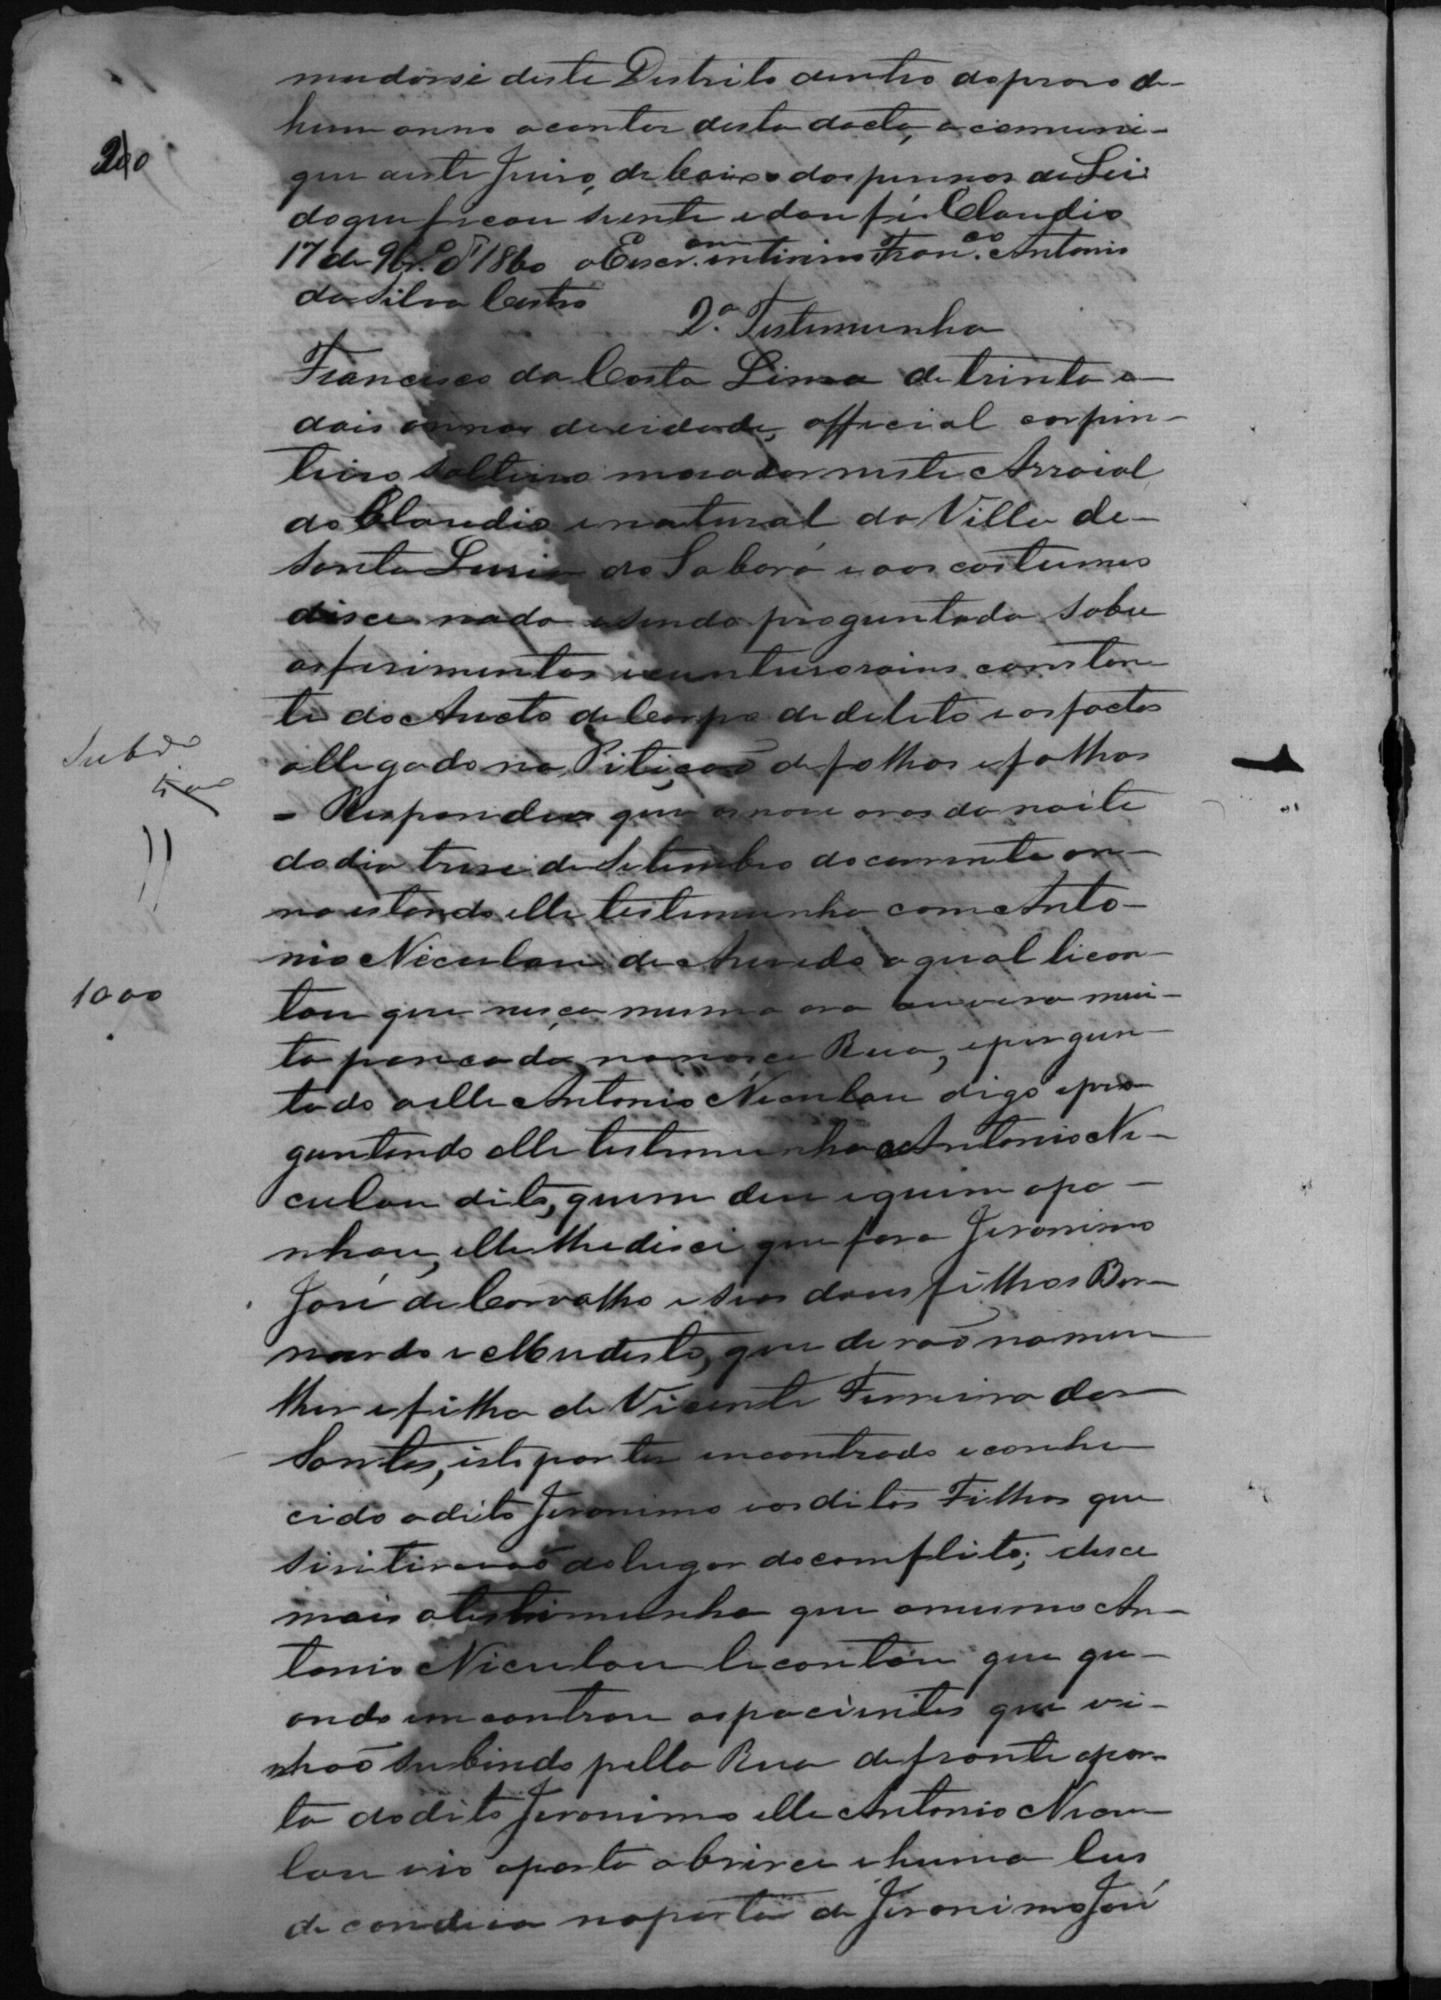 mudarse deste Destrito dentro do praso de
hum anno acontar desta dacta, o comuni-
200
que aeste Juiso, de baixo das pennas da Lei
do que ficou siente e dou fé. Claudio
17 de 9br.º d 1860 o Escr.am intirino Fran.co Antonio
da Silva Castro
2.a Testemunha
Francisco da Costa Lima de trinta e
dois annos de eidade, official carpin-
teiro solteiro morador neste Arraial
do Claudio e natural da Villa de
Santa Lusia do Sabará e aos costumes
disce nada e sendo preguntado sobre
os ferimentos e cunturoins constan
te do Aucto de Corpo de delito e os factos
allegado na Pitiçaõ de folhas e folhas
- Respondeo que as nove oras da noite
do dia trese de Setembro do corrente an-
no estando elle testemunha com Anto-
nio Niculau de Asevedo o qual li con-
1000
tou que nesça mesma ora ouvira mui-
ta pancada na nosça Rua, e pergun
tado a elle Antonio Niculau digo e pre
guntando elle testemunha a Antonio Ni-
culau dito, quem deu e quem apa-
nhou, elle lhe disce que fora Jeronimo
José de Carvalho e seos dous filhos Ber
nardo e Mudesto, que deraõ na mu
lher e filha de Vicente Ferreira dos
Santos, isto por ter encontrado e conhe
cido o dito Jeronimo e os ditos Filhos que
si ritiravaõ do lugar do comflito; e disce
mais a testemunha que o mesmo An-
tonio Niculau le contou que qu-
ando em controu as pacientes que vi-
nhaõ subindo pella Rua defronte a por-
ta do dito Jeronimo elle Antonio Nicu
lau vio a porta abrirce e huma lus
de candeia na porta de Jeronimo José